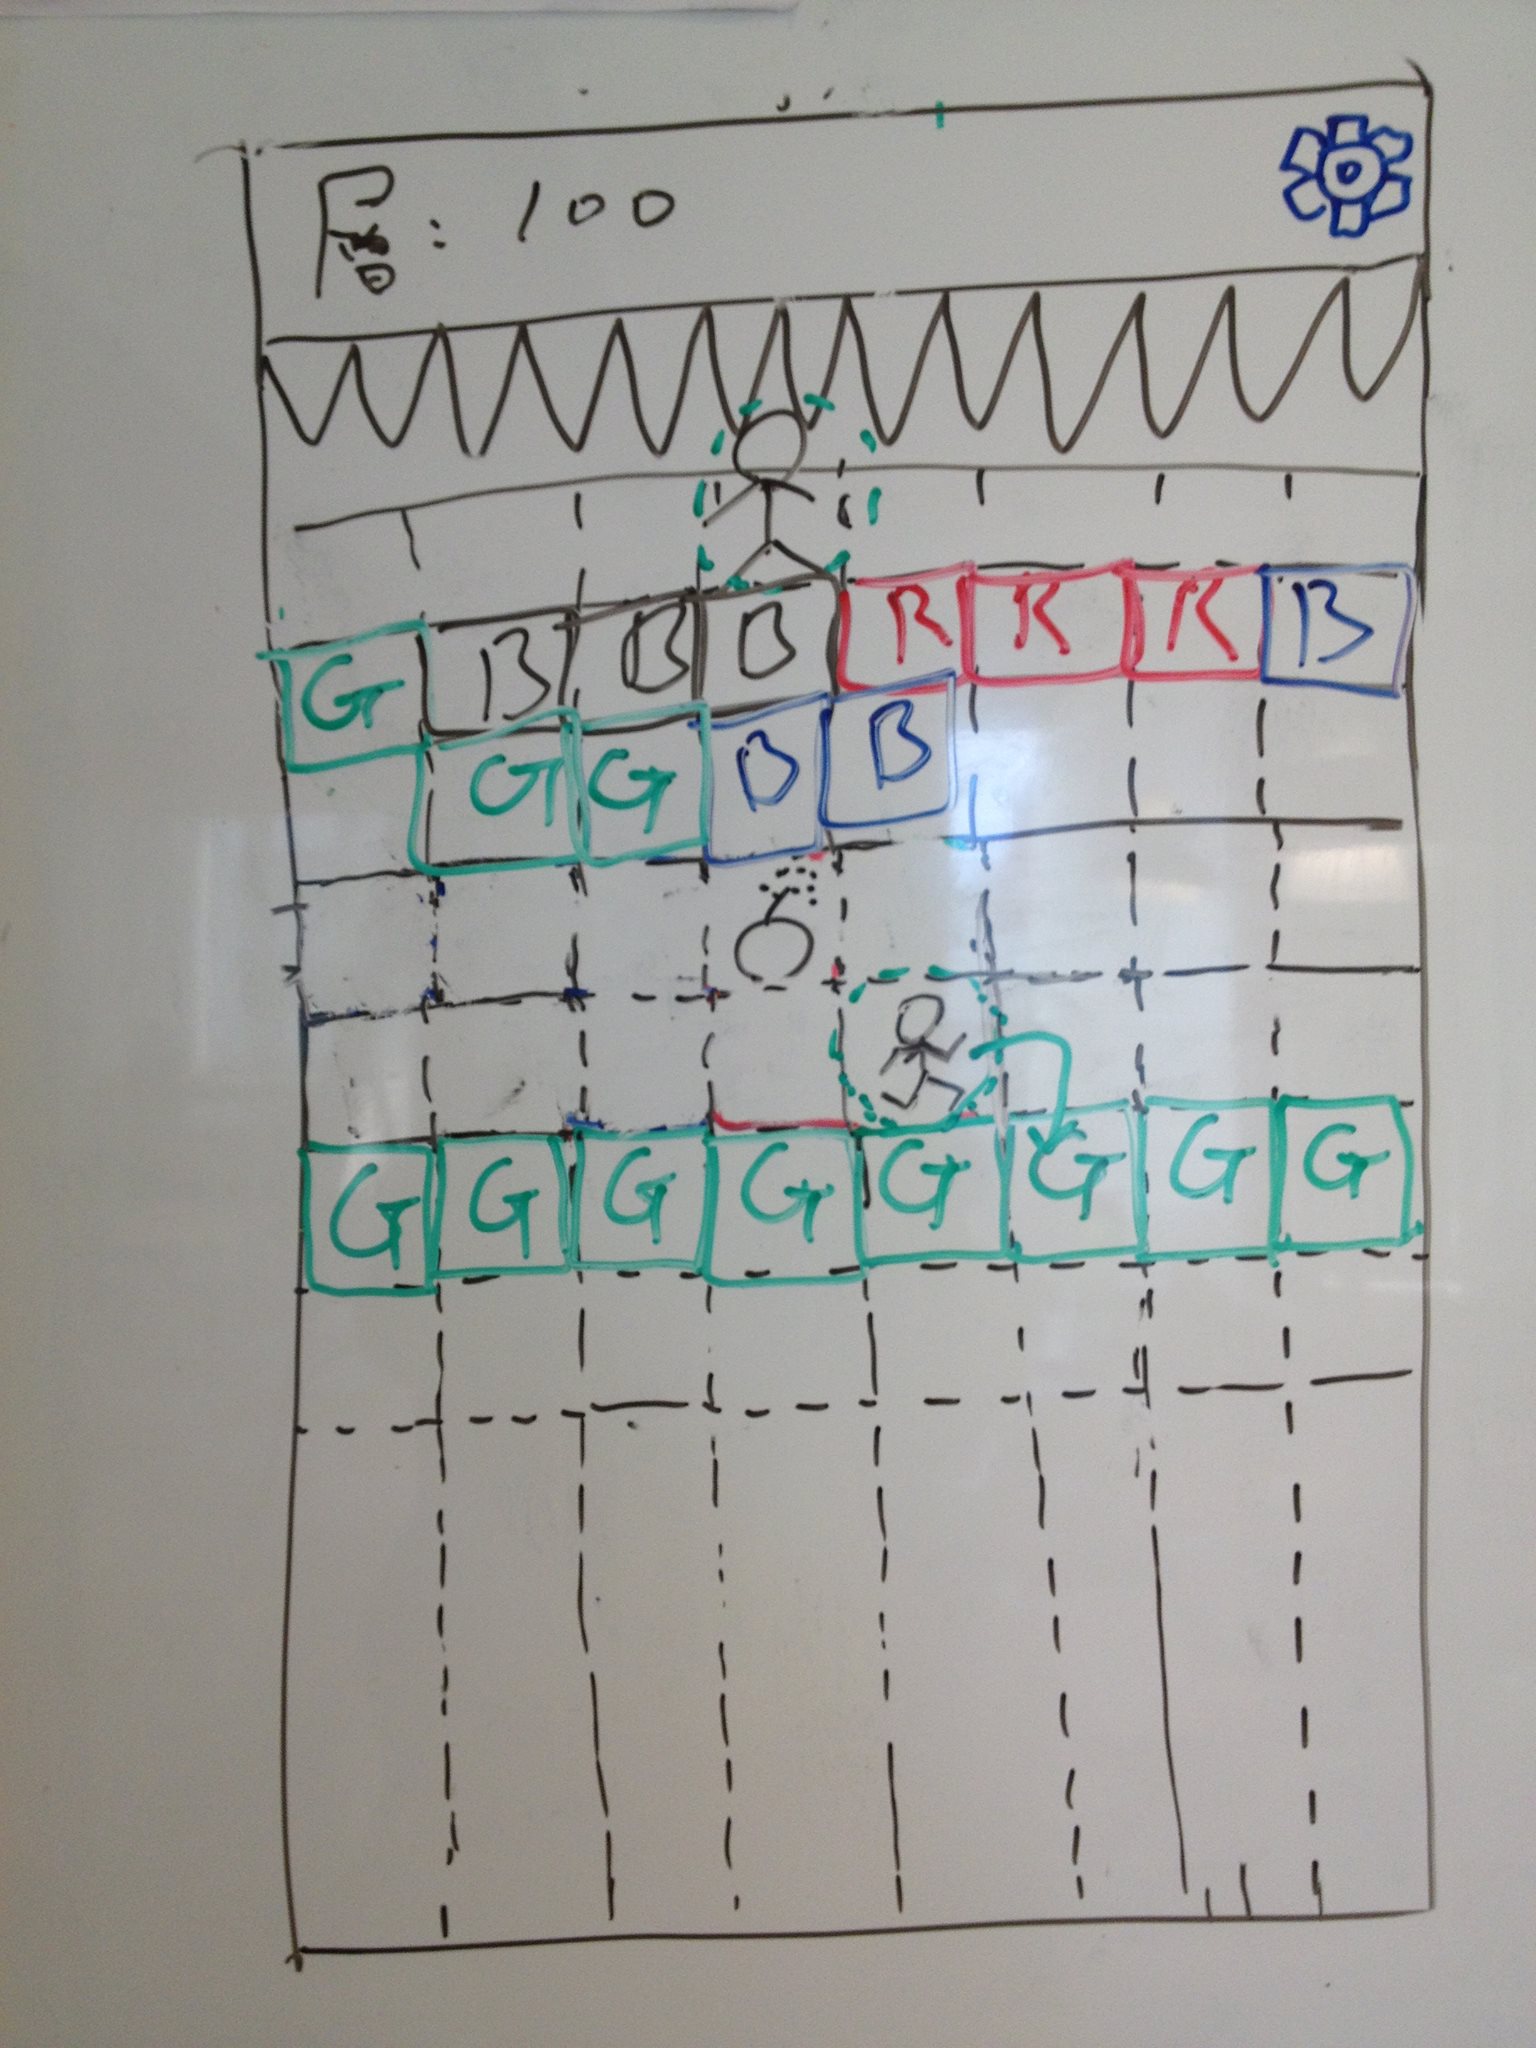 层: 100
G B B B R R R B
G G B B
G G G G G G G G